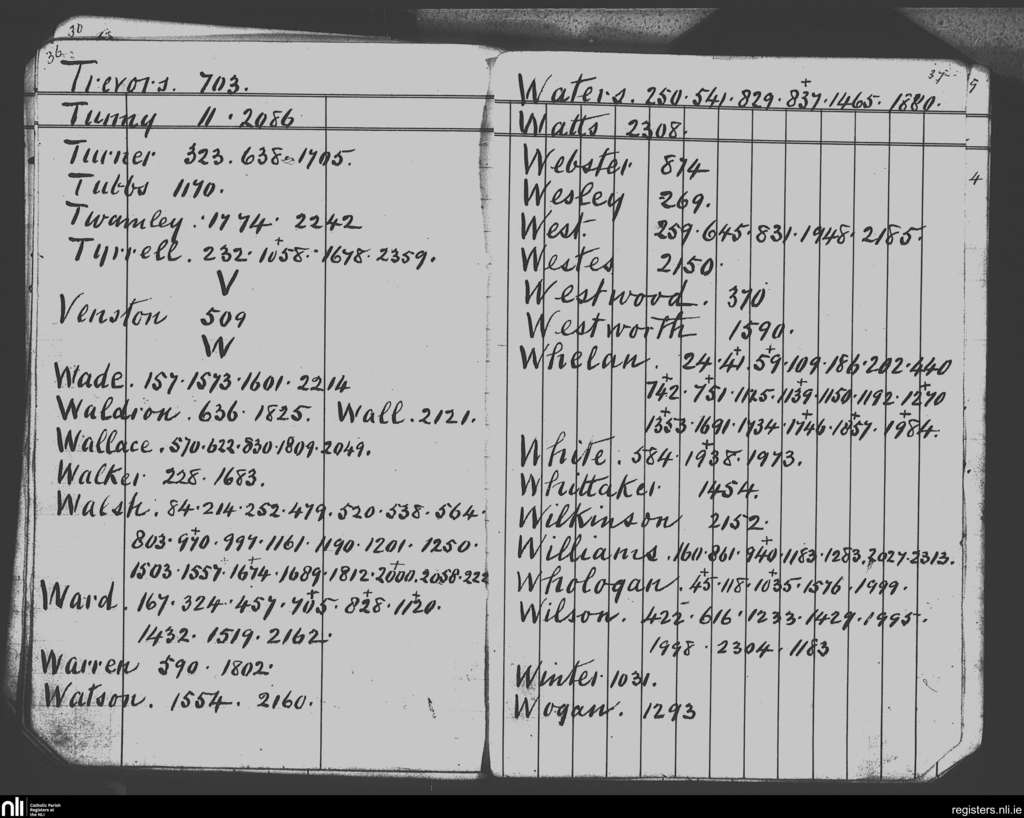 30
36
Trevors. 703.
Tunny 11 · 2086
Turner 323. 638 · 1705.
Tubbs 1170.
Twamley · 1774 · 2242
Tyrrell. 232 · 1058 · 1678 · 2359.
V
Venston 509
W
Wade. 157 · 1573 · 1601 · 2214
Waldron. 636 · 1825. Wall. 2121.
Wallace. 570 · 622 · 830 · 1809 · 2049.
Walker 228 · 1683.
Walsh. 84 · 214 · 252 · 479 · 520 · 538 · 564 ·
803 · 970 · 997 · 1161 · 1190 · 1201 · 1250 ·
1503 · 1557 · 1674 · 1689 · 1812 · 2000. 2058 · 222
Ward. 167 · 324 · 457 · 705 · 828 · 1120.
1432 · 1519 · 2162 ·
Warren 590 · 1802 ·
Watson. 1554. 2160.
37
5
4
Waters. 250 · 541 · 829 · 837 · 1465 · 1880.
Watts 2308.
Webster 874
Wesley 269.
West. 259 · 645 · 831 · 1948 · 2185.
Westes 2150 ·
Westwood. 370
Westworth 1590.
Whelan. 24 · 41 · 59 · 109 · 186 · 202 · 440
742 · 751 · 1125 · 1139 · 1150 · 1192 · 1270
1353 · 1691 · 1734 · 1746 · 1857 · 1984.
White. 584 · 1938 · 1973.
Whittaker 1454.
Wilkinson 2152 ·
Williams. 160 · 861 · 940 · 1183 · 1283. 2027 · 2313.
Whologan. 45 · 118 · 1035 · 1576 · 1999.
Wilson. 422 · 616 · 1233 · 1429 · 1995.
1998 · 2304 · 1183
Winter 1031.
Wogan. 1293
nli
Catholic Parish
Registers at
the NLI
registers.nli.ie